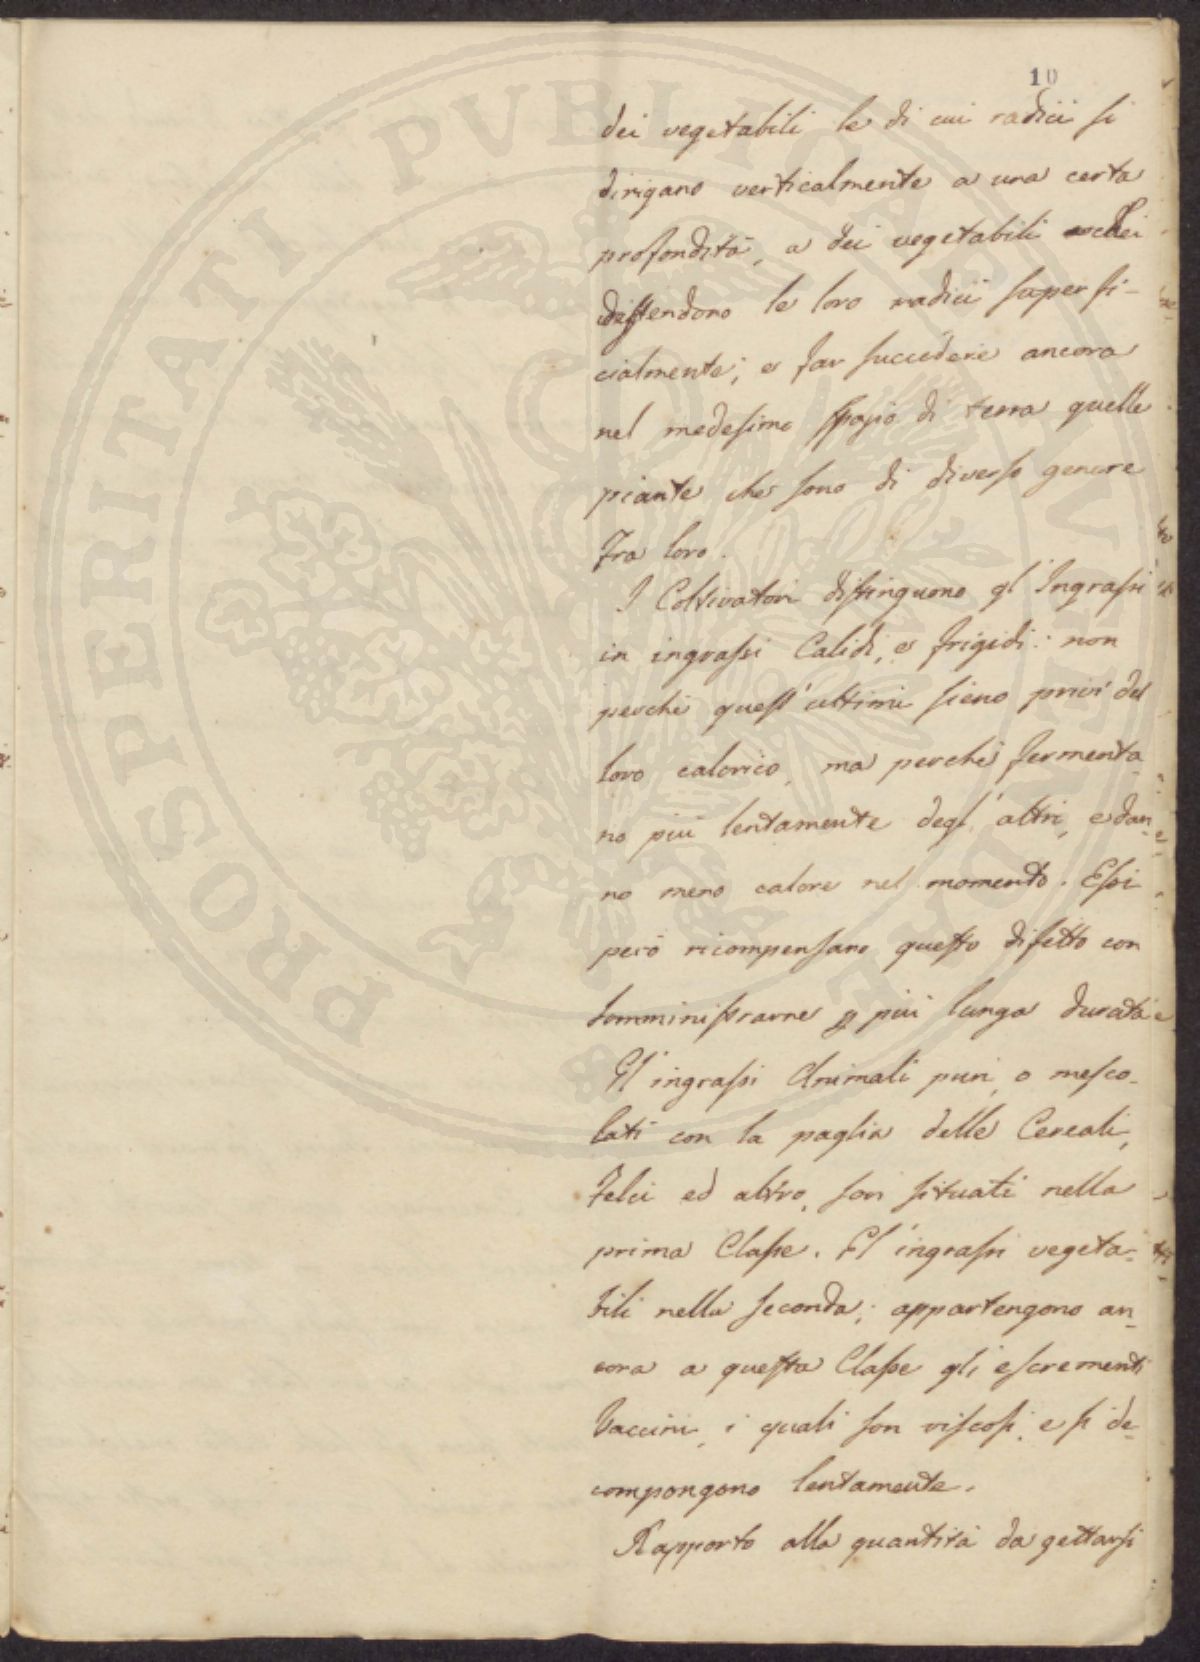 10
dei vegetabili le di cui radici si
dirigano verticalmente a una certa
profondità, a dei vegetabili che
distendono le loro radici superfi-
cialmente; e far succedere ancora
nel medesimo spazio di terra quelle
piante che sono di diverso genere
fra loro.
I Coltivatori distinguono gl'Ingrassi
in ingrassi Calidi, e frigidi: non
perchè quest'ultimi sieno privi del
loro calorico, ma perchè fermenta
no più lentamente degl'altri, e dan
no meno calore nel momento. Essi
però ricompensano questo difetto con
somministrarne p più lunga durata
Gl'ingrassi Animali puri, o mesco-
lati con la paglia delle Cereali,
Felci ed altro, son situati nella
prima Classe. Gl'ingrassi vegeta-
bili nella seconda; appartengono an-
cora a questa Classe gli escrementi
Vaccini, i quali son viscosi, e si de-
compongono lentamente.
Rapporto alla quantità da gettarsi
PROSPERITATI PVBLICAE AVGENDAE